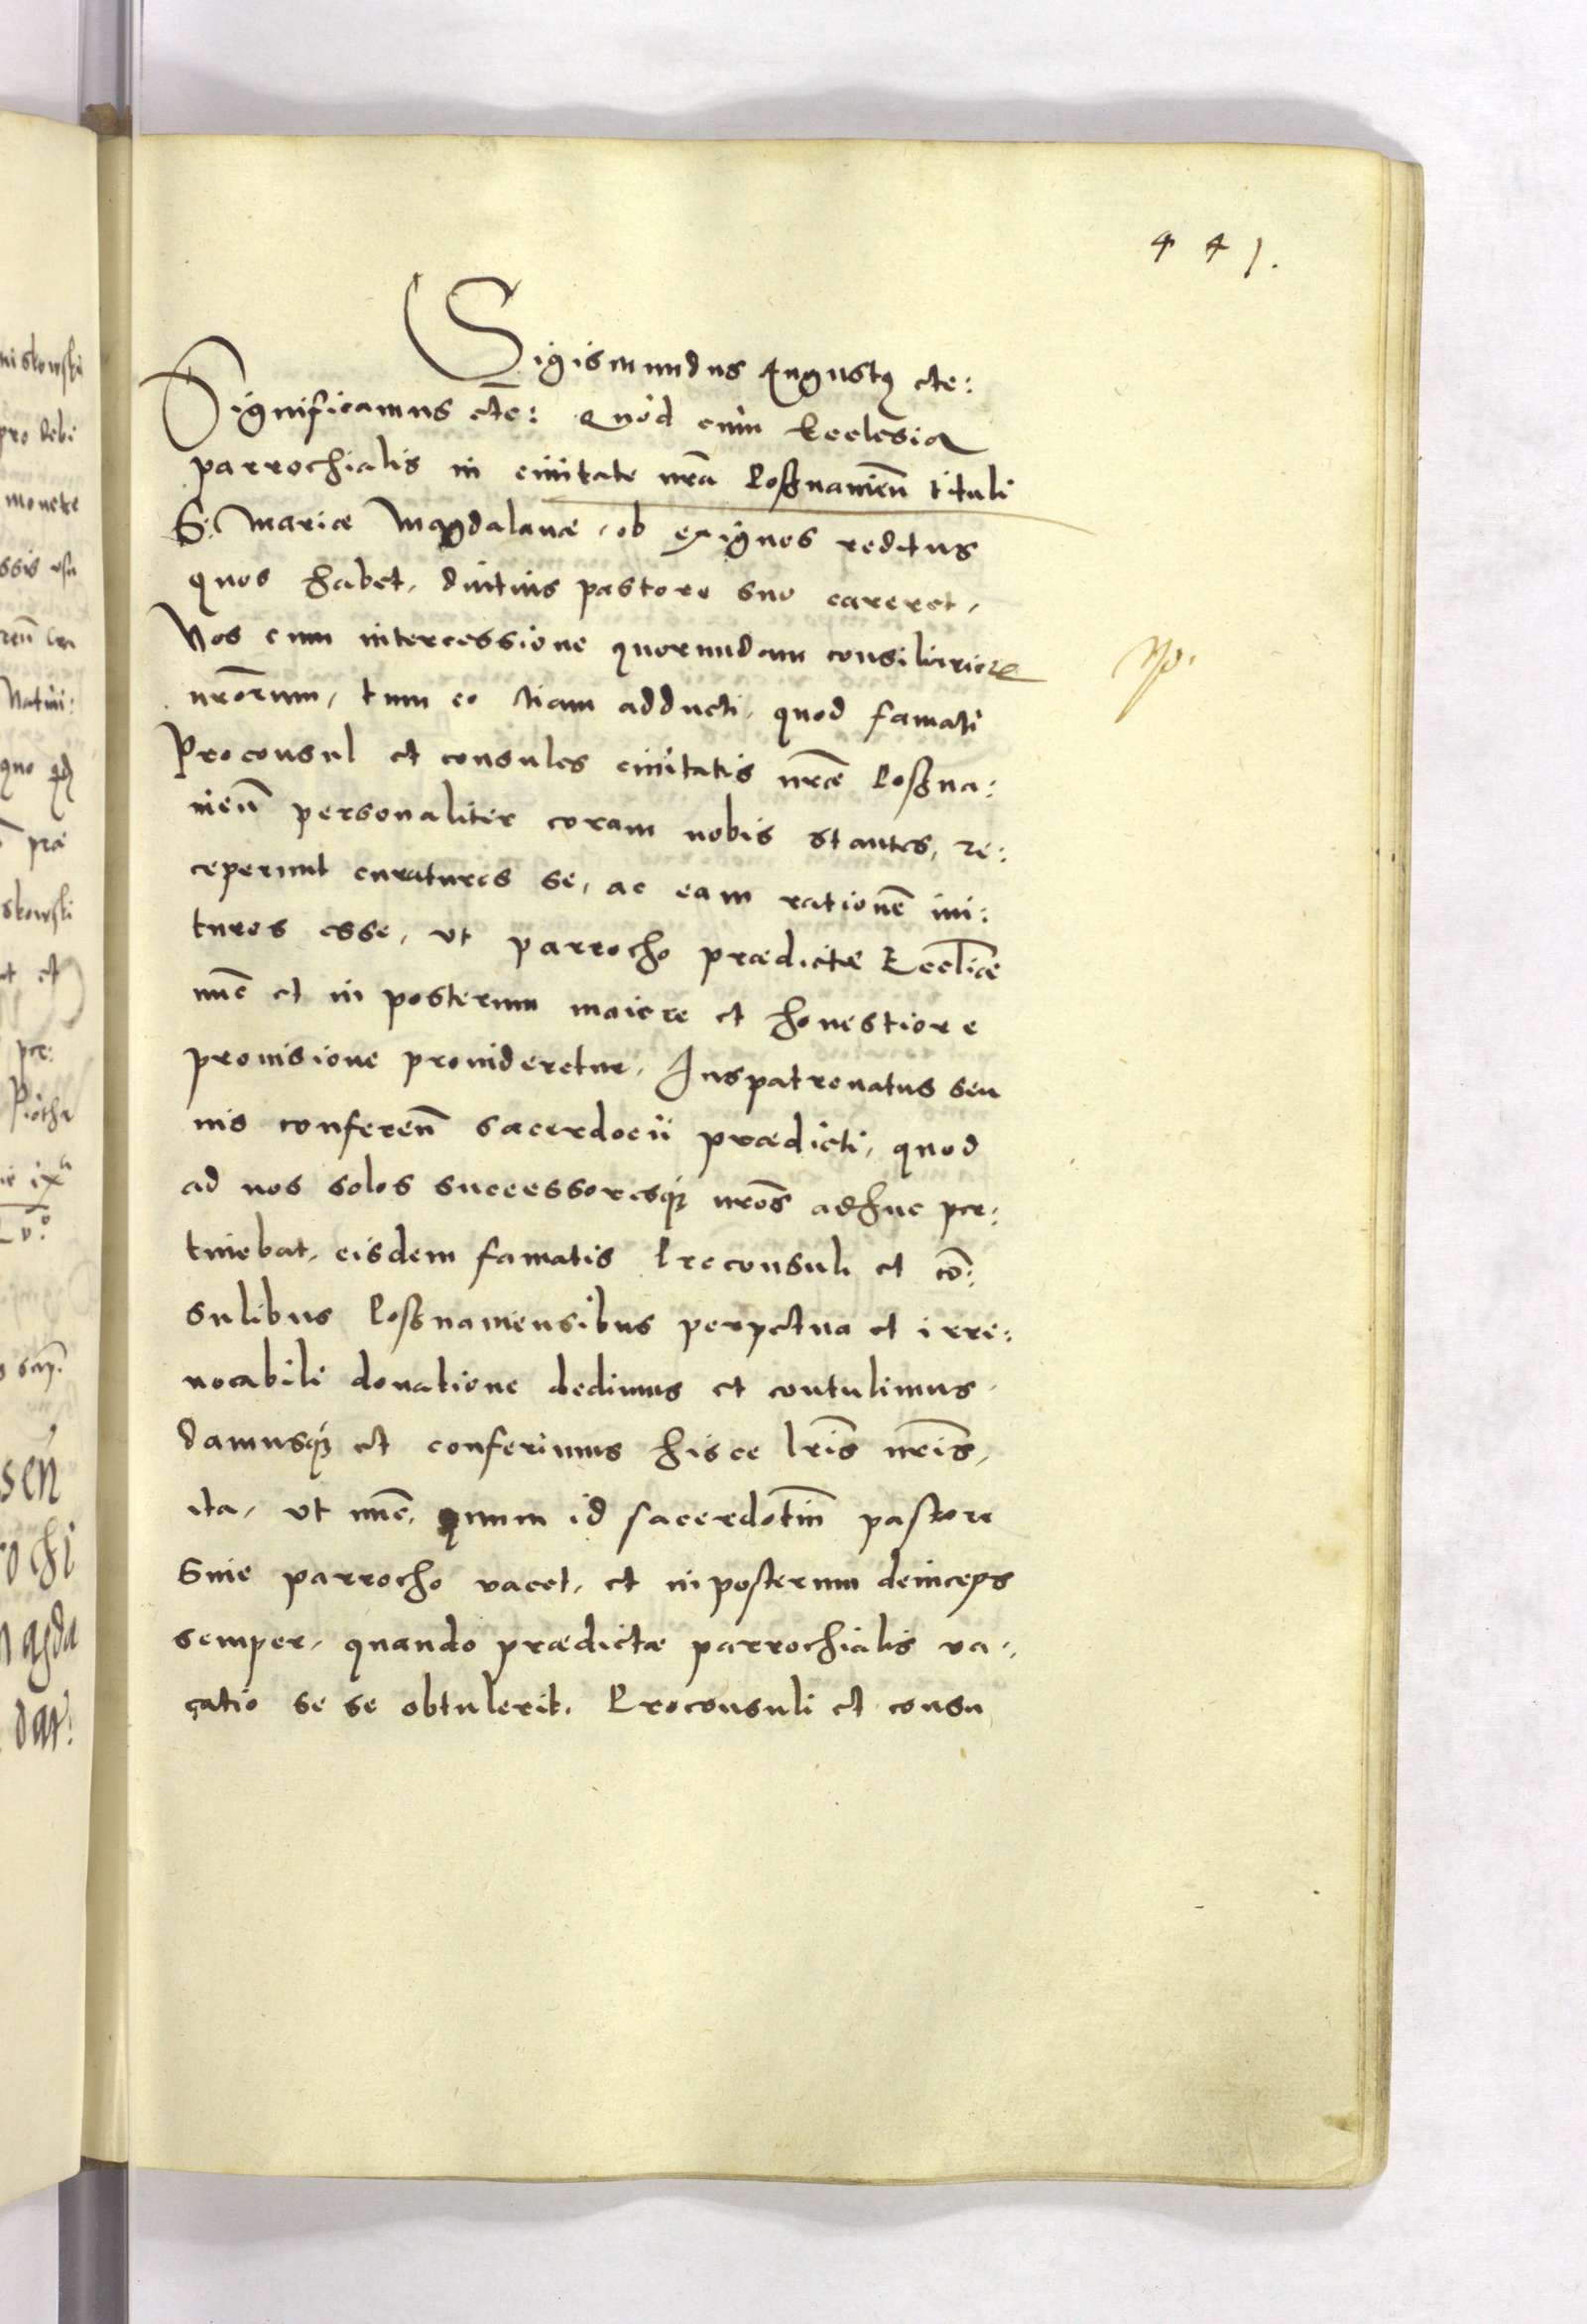 441.
Sigismundus Augustus etc:
Significamus etc: Quod cum Ecclesia
parrochialis in ciuitate nrã Posnanień tituli
S. Mariae Magdalanae, ob exiguos reditus
quos habet, diutius pastore suo careret,
Nos cum intercessione quorundam consiliarior
nrõrum, tum eo etiam adducti, quod famati
Proconsul et consules ciuitatis nrãe Posna:
nień personaliter coram nobis stantes, re:
ceperunt curaturos se, ac eam rationẽ ini:
turos esse, vt parrocho praedictae Eccliãe
nũc et in posterum maiore et honestiore
prouisione prouideretur, Iuspatronatus seu
ius conferen̄ sacerdocii praedicti, quod
ad nos solos successoresq; nrõs adhuc per:
tinebat, eisdem famatis Proconsuli et cõ:
sulibus Posnaniensibus perpetua et irre:
uocabili donatione dedimus et contulimus,
damusq; et conferimus hisce lrĩs nrĩs,
ita, vt nũc, quum id sacerdotiũ pastore
siue parrocho vacet, et inposterum deinceps
semper, quando praedictae parrochialis va:
catio se se obtulerit, Proconsuli et consu